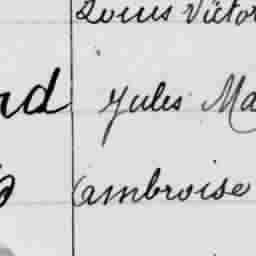 Louis Victor
rd Jules Ma
Cambroise